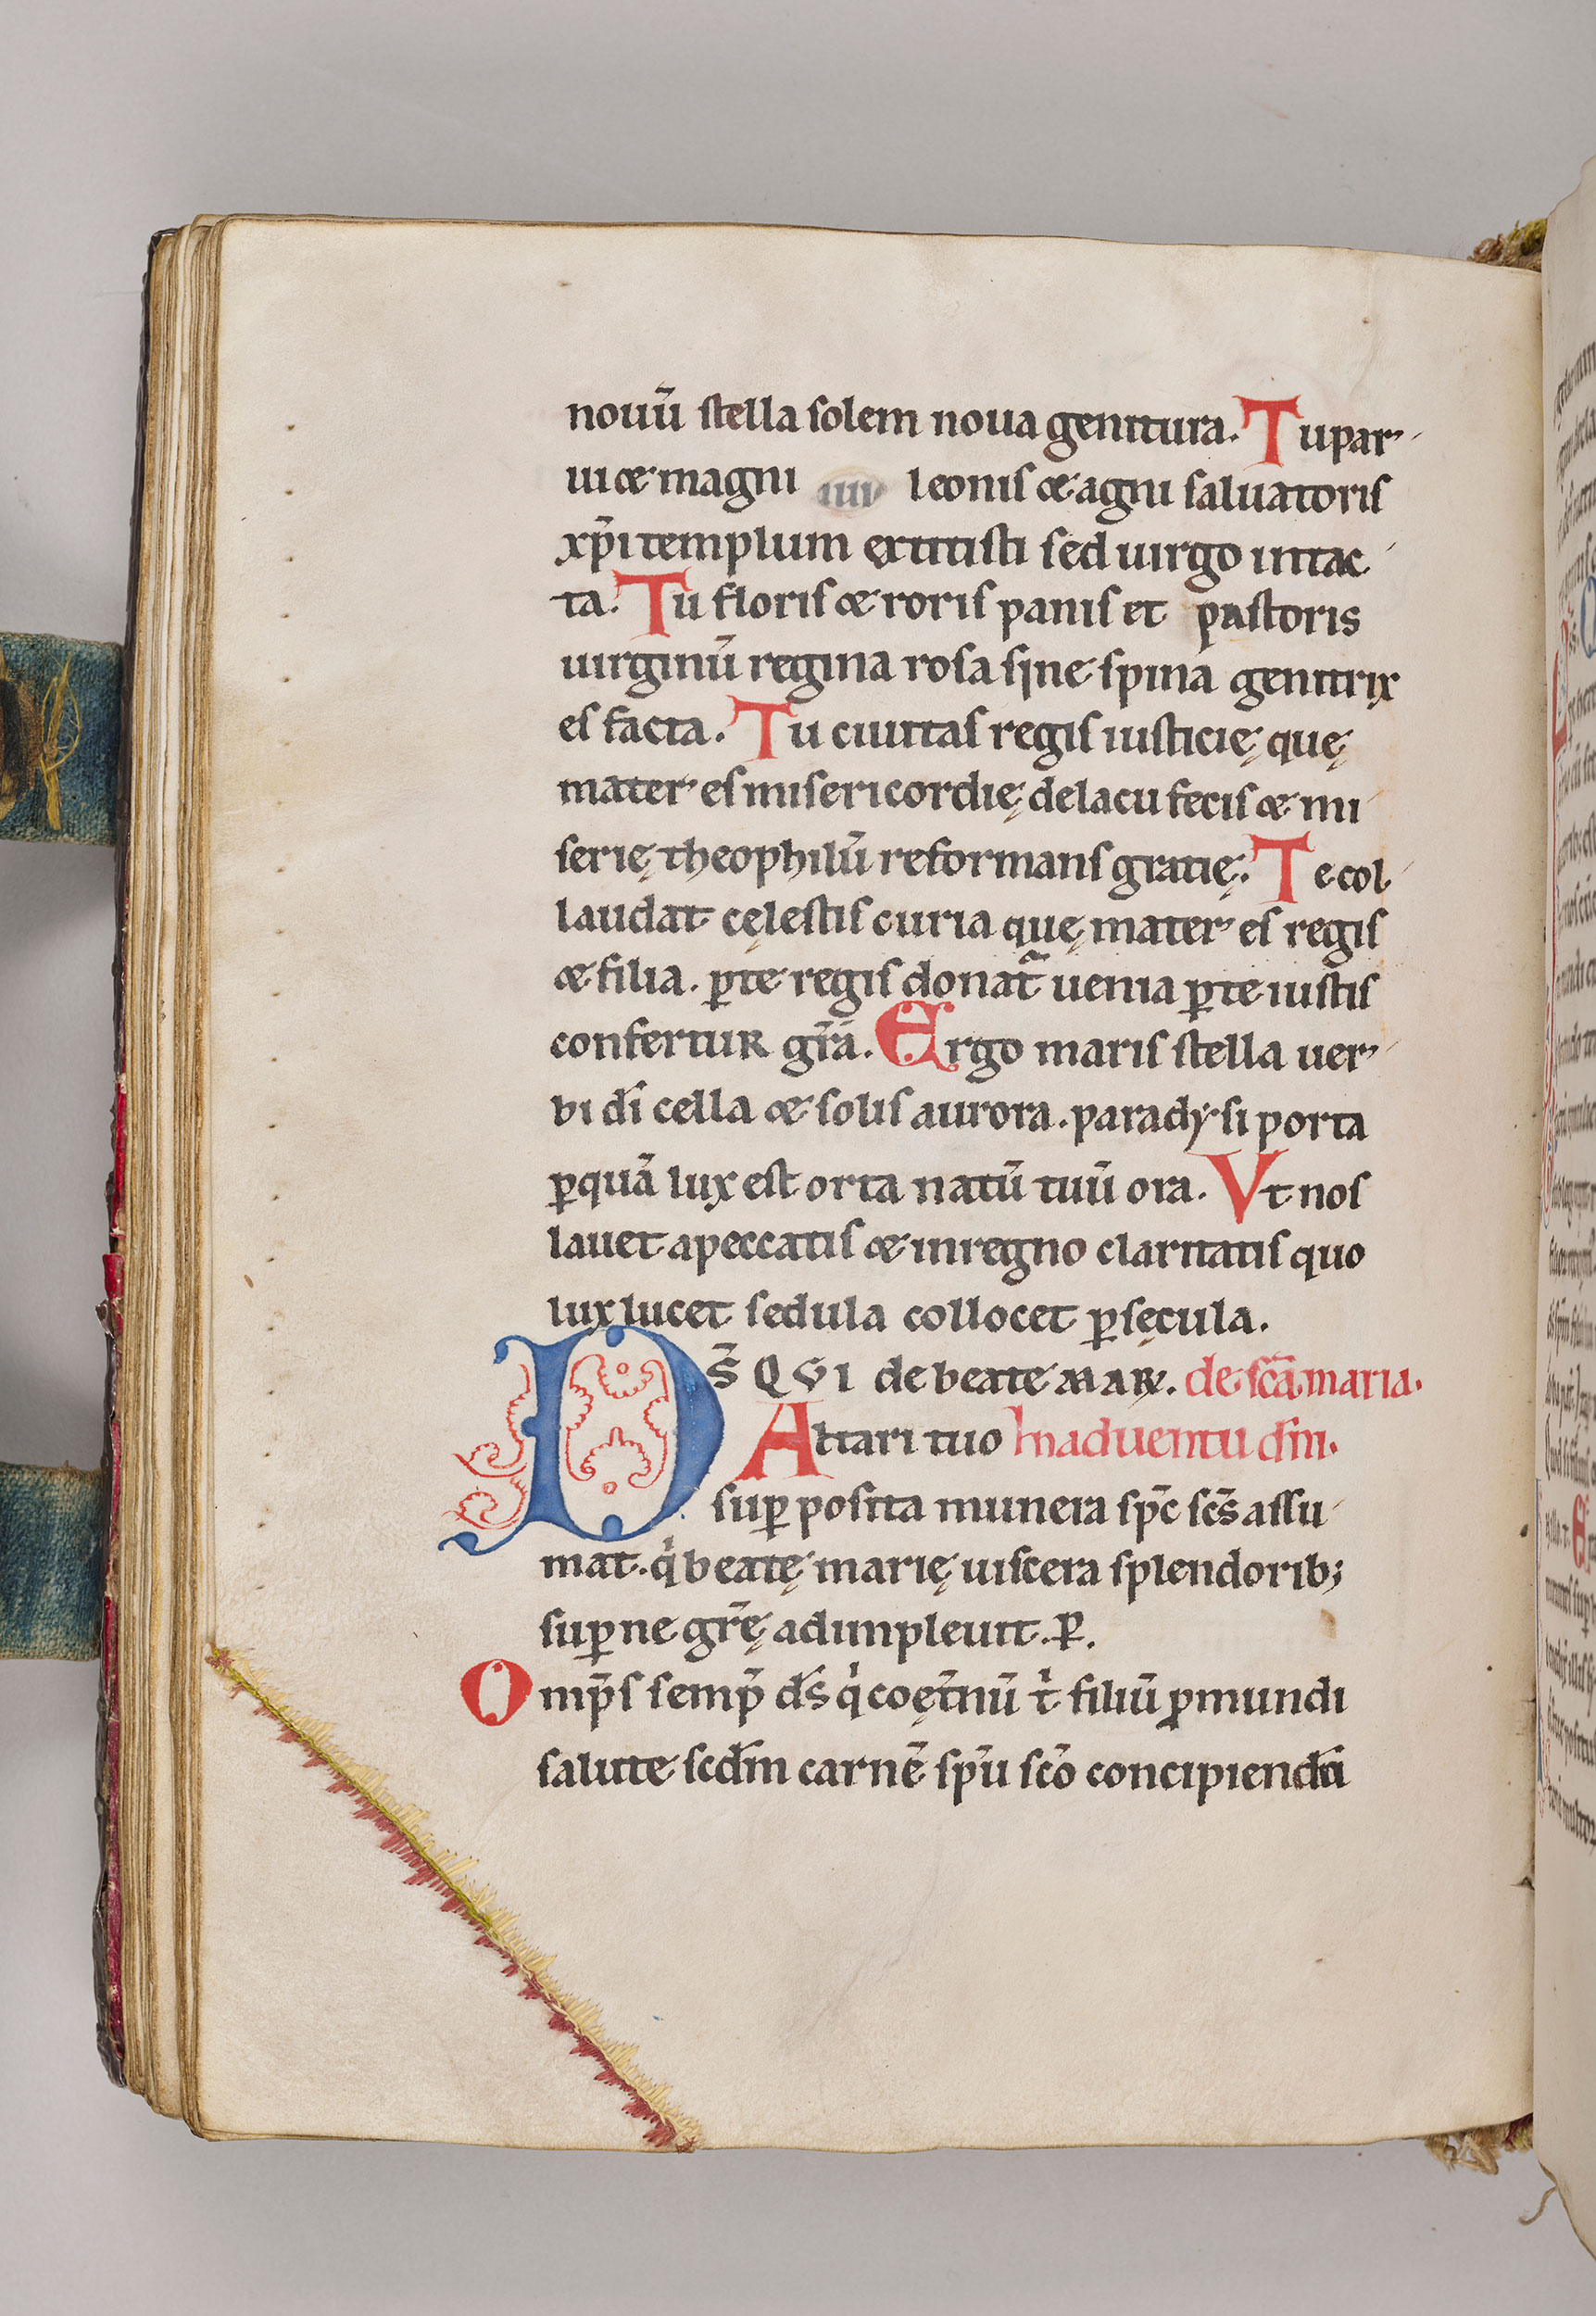 nouū stella solem noua genitura. Tu par
ui & magni leonis & agni saluatoris
xp̄i templum extitisti sed uirgo intac
ta. Tu floris & roris panis et pastoris
uirginū regina rosa sine spina genitrix
es facta. Tu ciuitas regis iusticię quę
mater es misericordię de lacu fecis & mi
serię theophilū reformans gratię. Te col
laudat cęlestis curia quę mater es regis
& filia. ꝑ te regis donat᷑ uenia ꝑ te iustis
confertur gr̄a. Ergo maris stella uer
bi dī cella & solis aurora. paradysi porta
ꝑ quā lux est orta natū tuū ora. Vt nos
lauet a peccatis & in regno claritatis quo
lux lucet sedula collocet ꝑ sęcula.
Ds̄ QUI de beate MARY. de sc̄a maria.
Altari tuo In aduentu dn̄i.
suꝑ posita munera sp̄c sc̄s assu
mat. q̇ beatę marię uiscera splendorib;
suꝑne gr̄ę adimpleuit. P.
Omp̄s semp̄ ds̄ q̇ coęt̄nū ṫ filiū ꝓ mundi
salute scdm̄ carnē sp̄u sc̄o concipiendū